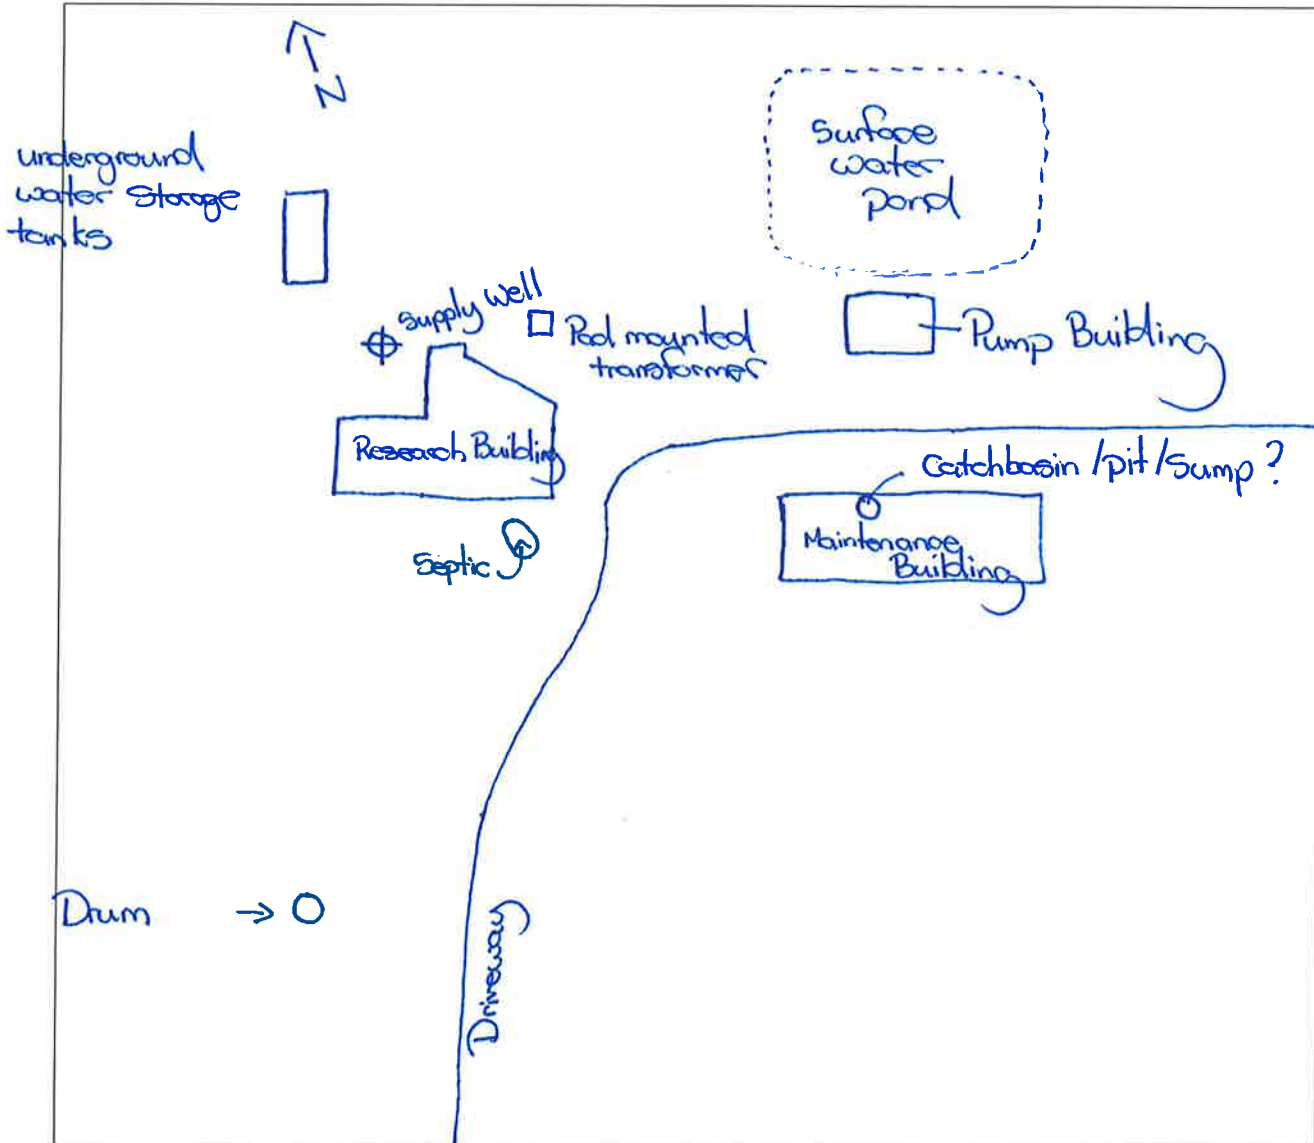 N
underground
water Storage
tanks
Surface
water
pond
Supply Well
Pad mounted
transformer
Pump Building
Research Building
Catchbasin /pit/Sump ?
Maintenance
Building
Septic
Drum
Driveway